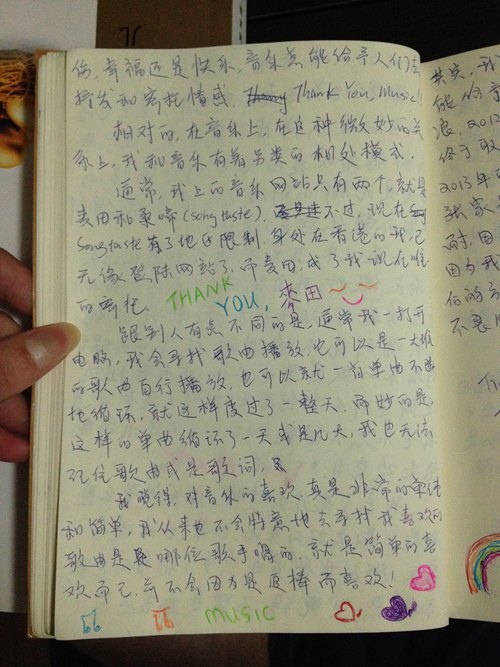 伤,幸福还是快乐,音乐总能给予人们去
抒发和寄托情感. Thank You, Music!!
相对的,在音乐上,在这种微妙的关
系上,我和音乐有着另类的相处模式.
通常,我上的音乐网站只有两个,就是
麦田和桑啼(songtaste). 不过,现在
Songtaste有了地区限制,身处在香港的我,已
无缘登陆网站了.而麦田,成了我现在唯一
的寄托. THANK YOU, 麥田
跟别人有点不同的是,通常我一打开
电脑,我会寻找歌曲播放,也可以是一大堆
的歌曲自行播放,也可以就一首单曲不断
地循环,就这样度过了一整天.而妙的是,
这样的单曲循环了一天或是几天,我也无法
记住歌曲或是歌词,
我觉得,对音乐的喜欢,真是非常的单纯
和简单,我从来也不会特意地去寻找我喜欢的
歌曲是哪位歌手唱的,就是简单的喜
欢而已.并不会因为是追捧而喜欢!
MUSIC
其实,我
能给予
浪,201
终于
2013年
张家
耐,因
因为我
你的
不畏